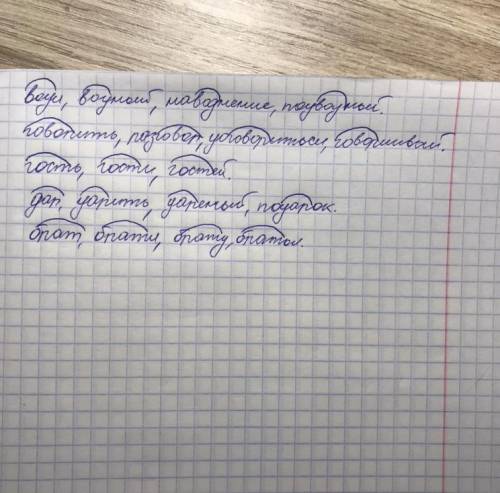 воды, водный, наводнение, подводный.
говорить, разговор, уговориться, говорливый.
гость, гости, гостей.
дар, дарить, дареный, подарок.
брат, брати, брату, братья.